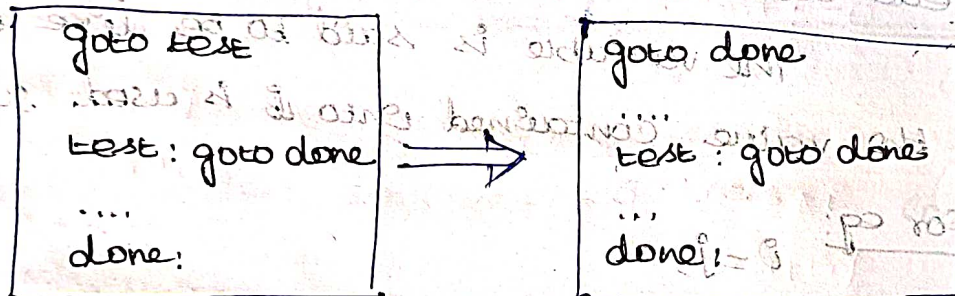 goto test
....
test: goto done
....
done:
goto done
.....
test: goto done
...
done: